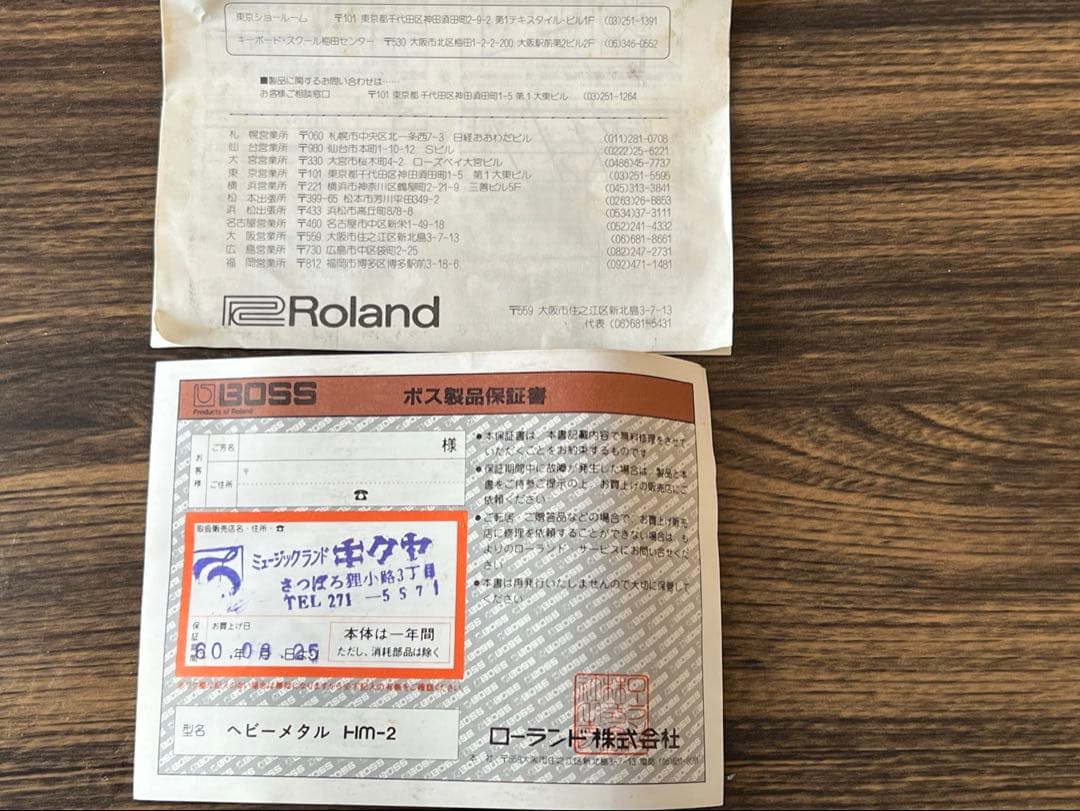 東京ショールーム 〒101 東京都千代田区神田須田町2-9-2 第1テキスタイル・ビル1F (03)251-1391
キーボード・スクール梅田センター 〒530 大阪市北区梅田1-2-2-200 大阪駅前第2ビル2F (06)346-0552
■製品に関するお問い合わせは……
お客様ご相談窓口 〒101 東京都千代田区神田須田町1-5 第1大東ビル (03)251-1264
札幌営業所 〒060 札幌市中央区北一条西7-3 日経おおわだビル (011)281-0708
仙台営業所 〒980 仙台市本町1-10-12 Sビル (0222)25-6221
大宮営業所 〒330 大宮市桜木町4-2 ローズベイ大宮ビル (0486)45-7737
東京営業所 〒101 東京都千代田区神田須田町1-5 第1大東ビル (03)251-5595
横浜営業所 〒221 横浜市神奈川区鶴屋町2-21-9 三善ビル5F (045)313-3841
松本出張所 〒399-65 松本市芳川平田349-2 (0263)26-8853
浜松出張所 〒433 浜松市高丘町878-8 (0534)37-3111
名古屋営業所 〒460 名古屋市中区新栄1-49-18 (052)241-4332
大阪営業所 〒559 大阪市住之江区新北島3-7-13 (06)681-8661
広島営業所 〒730 広島市中区袋町2-25 (082)247-2731
福岡営業所 〒812 福岡市博多区博多駅前3-18-6 (092)471-1481
Roland
〒559 大阪市住之江区新北島3-7-13
代表 (06)681-5431
BOSS
Products of Roland
ボス製品保証書
お客様
ご芳名 様
ご住所 〒
☎
取扱販売店名・住所・☎
ミュージックランド キクヤ
さっぽろ狸小路3丁目
TEL 271-5571
保証期間
お買上げ日
60.09.25
年 月 日より
本体は一年間
ただし、消耗部品は除く
●本保証書は、本書記載内容で無料修理をさせて
いただくことをお約束するものです
●保証期間中に故障が発生した場合は、製品と本
書をご持参ご提示の上、お買上げの販売店にご
依頼ください
●ご転居、ご贈答品などの場合で、お買上げ販売
店に修理を依頼することができない場合は、も
よりのローランド・サービスにお問い合せくだ
さい
●本書は再発行いたしませんので大切に保管して
ください
型名 ヘビーメタル HM-2
ローランド株式会社